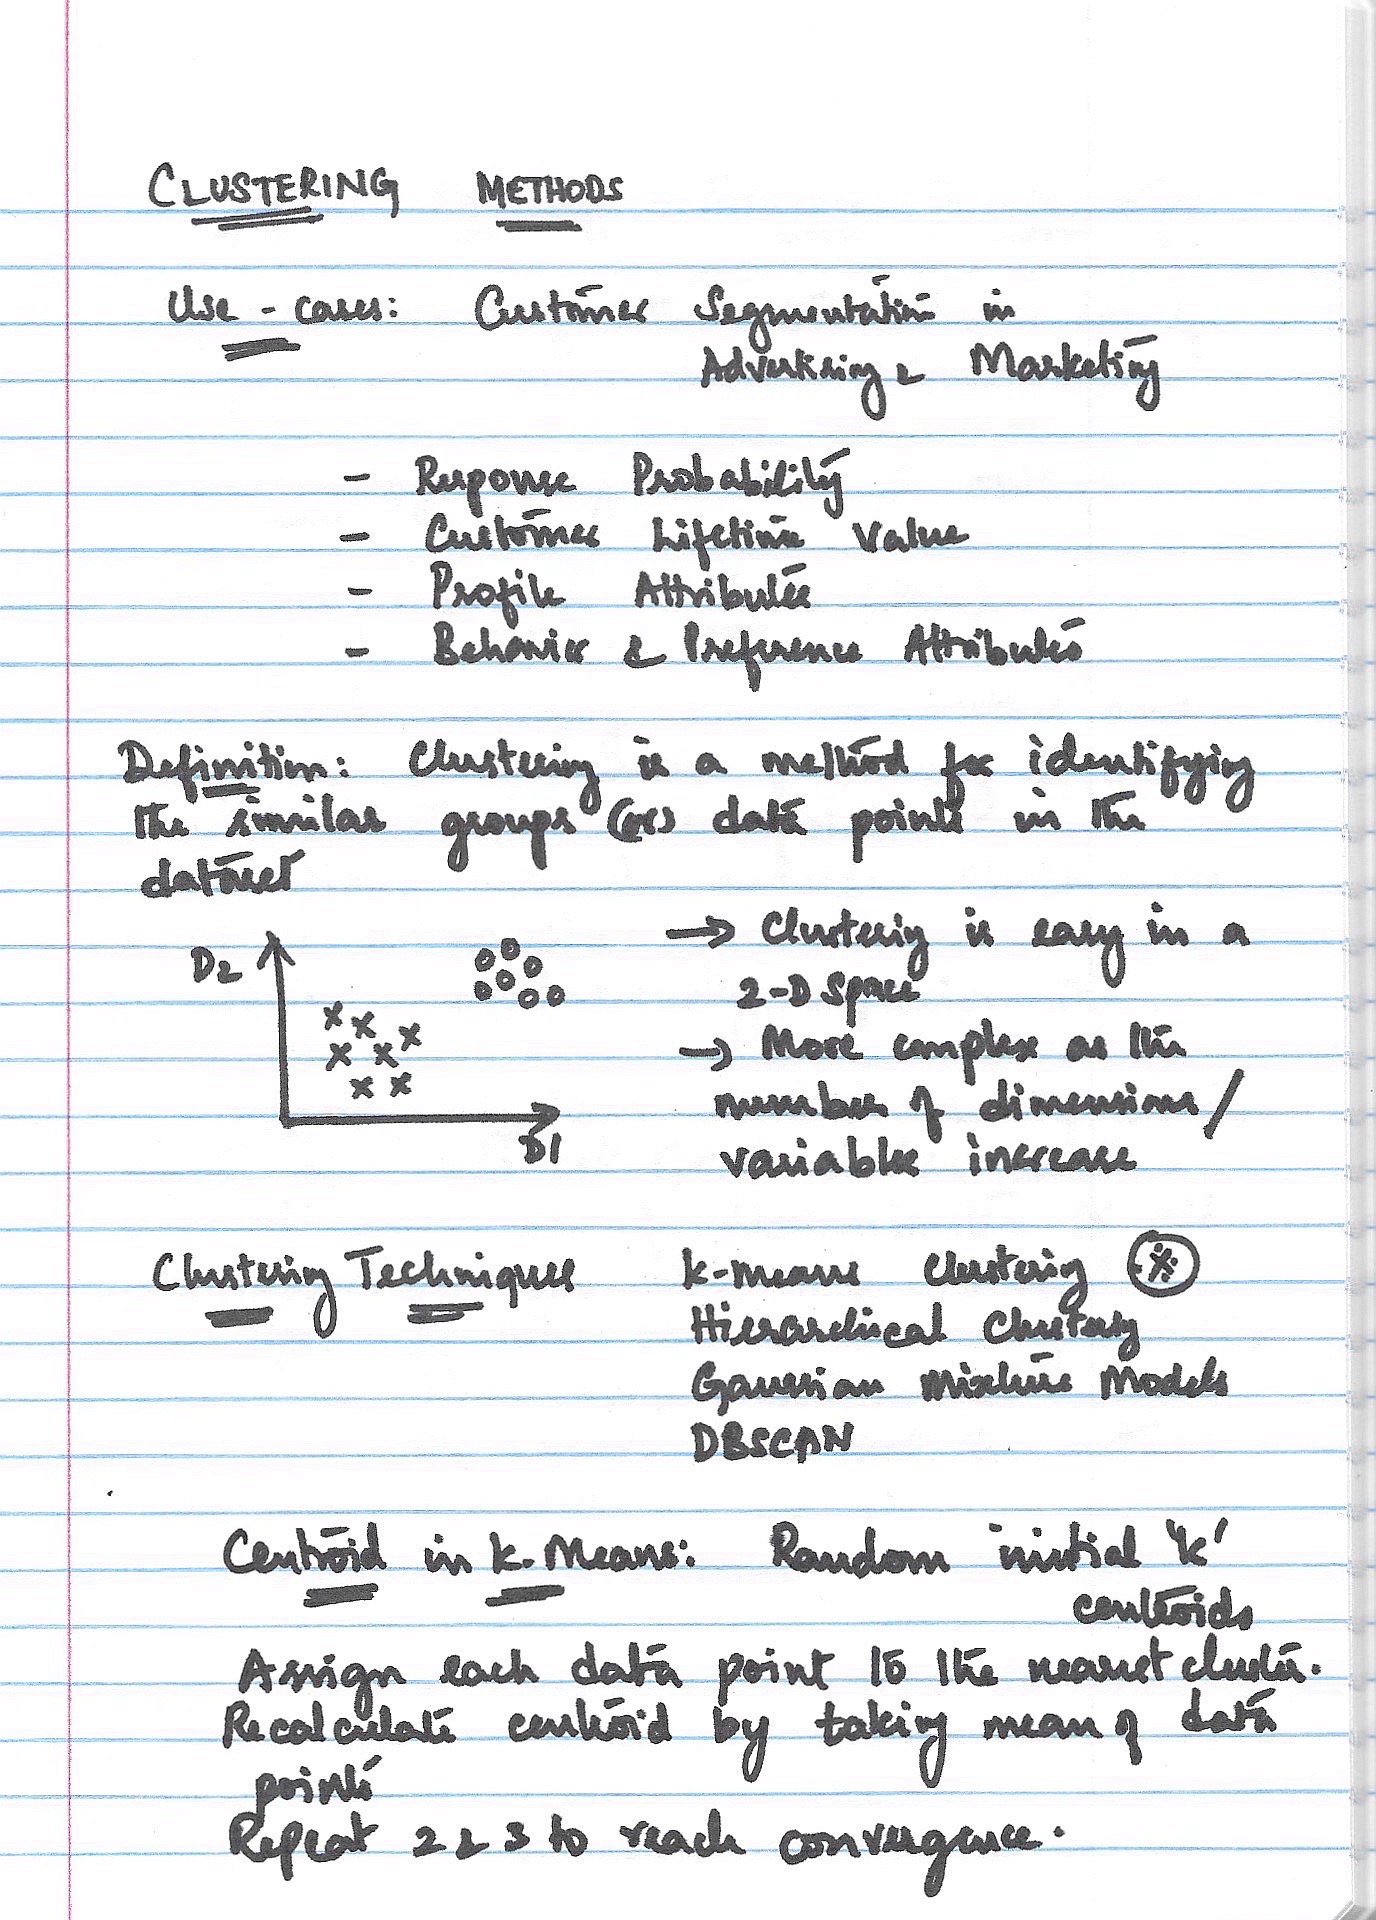 CLUSTERING METHODS
Use-cases: Customer Segmentation in
Advertising & Marketing
- Response Probability
- Customer Lifetime Value
- Profile Attributes
- Behavior & Preference Attributes
Definition: Clustering is a method for identifying
the similar groups (or) data points in the
dataset
D2
D1
→ Clustering is easy in a
2-D Space
→ More complex as the
number of dimensions/
variables increase
Clustering Techniques
k-means clustering *
Hierarchical Clustering
Gaussian Mixture Models
DBSCAN
Centroid in k-Means: Random initial 'k'
centroids
Assign each data point to the nearest cluster.
Recalculate centroid by taking mean of data
points
Repeat 2 & 3 to reach convergence.